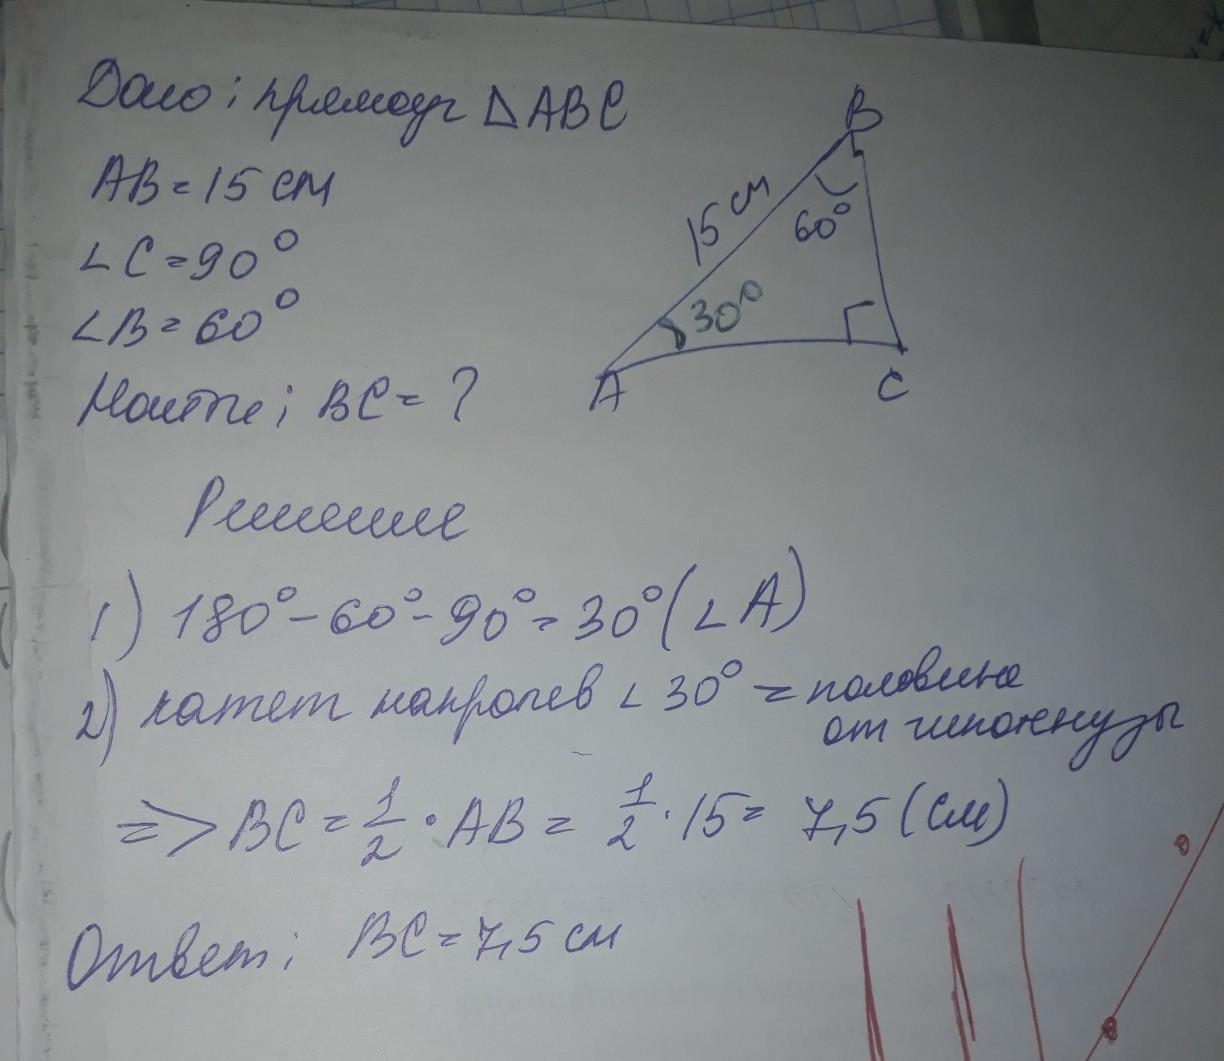 Дано: прямоуг △ABC
AB = 15 см
∠C = 90°
∠B = 60°
Найти: BC = ?
B
15 см
60°
30°
A
C
Решение
1) 180° - 60° - 90° = 30° (∠A)
2) катет напротив ∠30° = половине
от гипотенузы
=> BC = 1/2 · AB = 1/2 · 15 = 7,5 (см)
Ответ: BC = 7,5 см